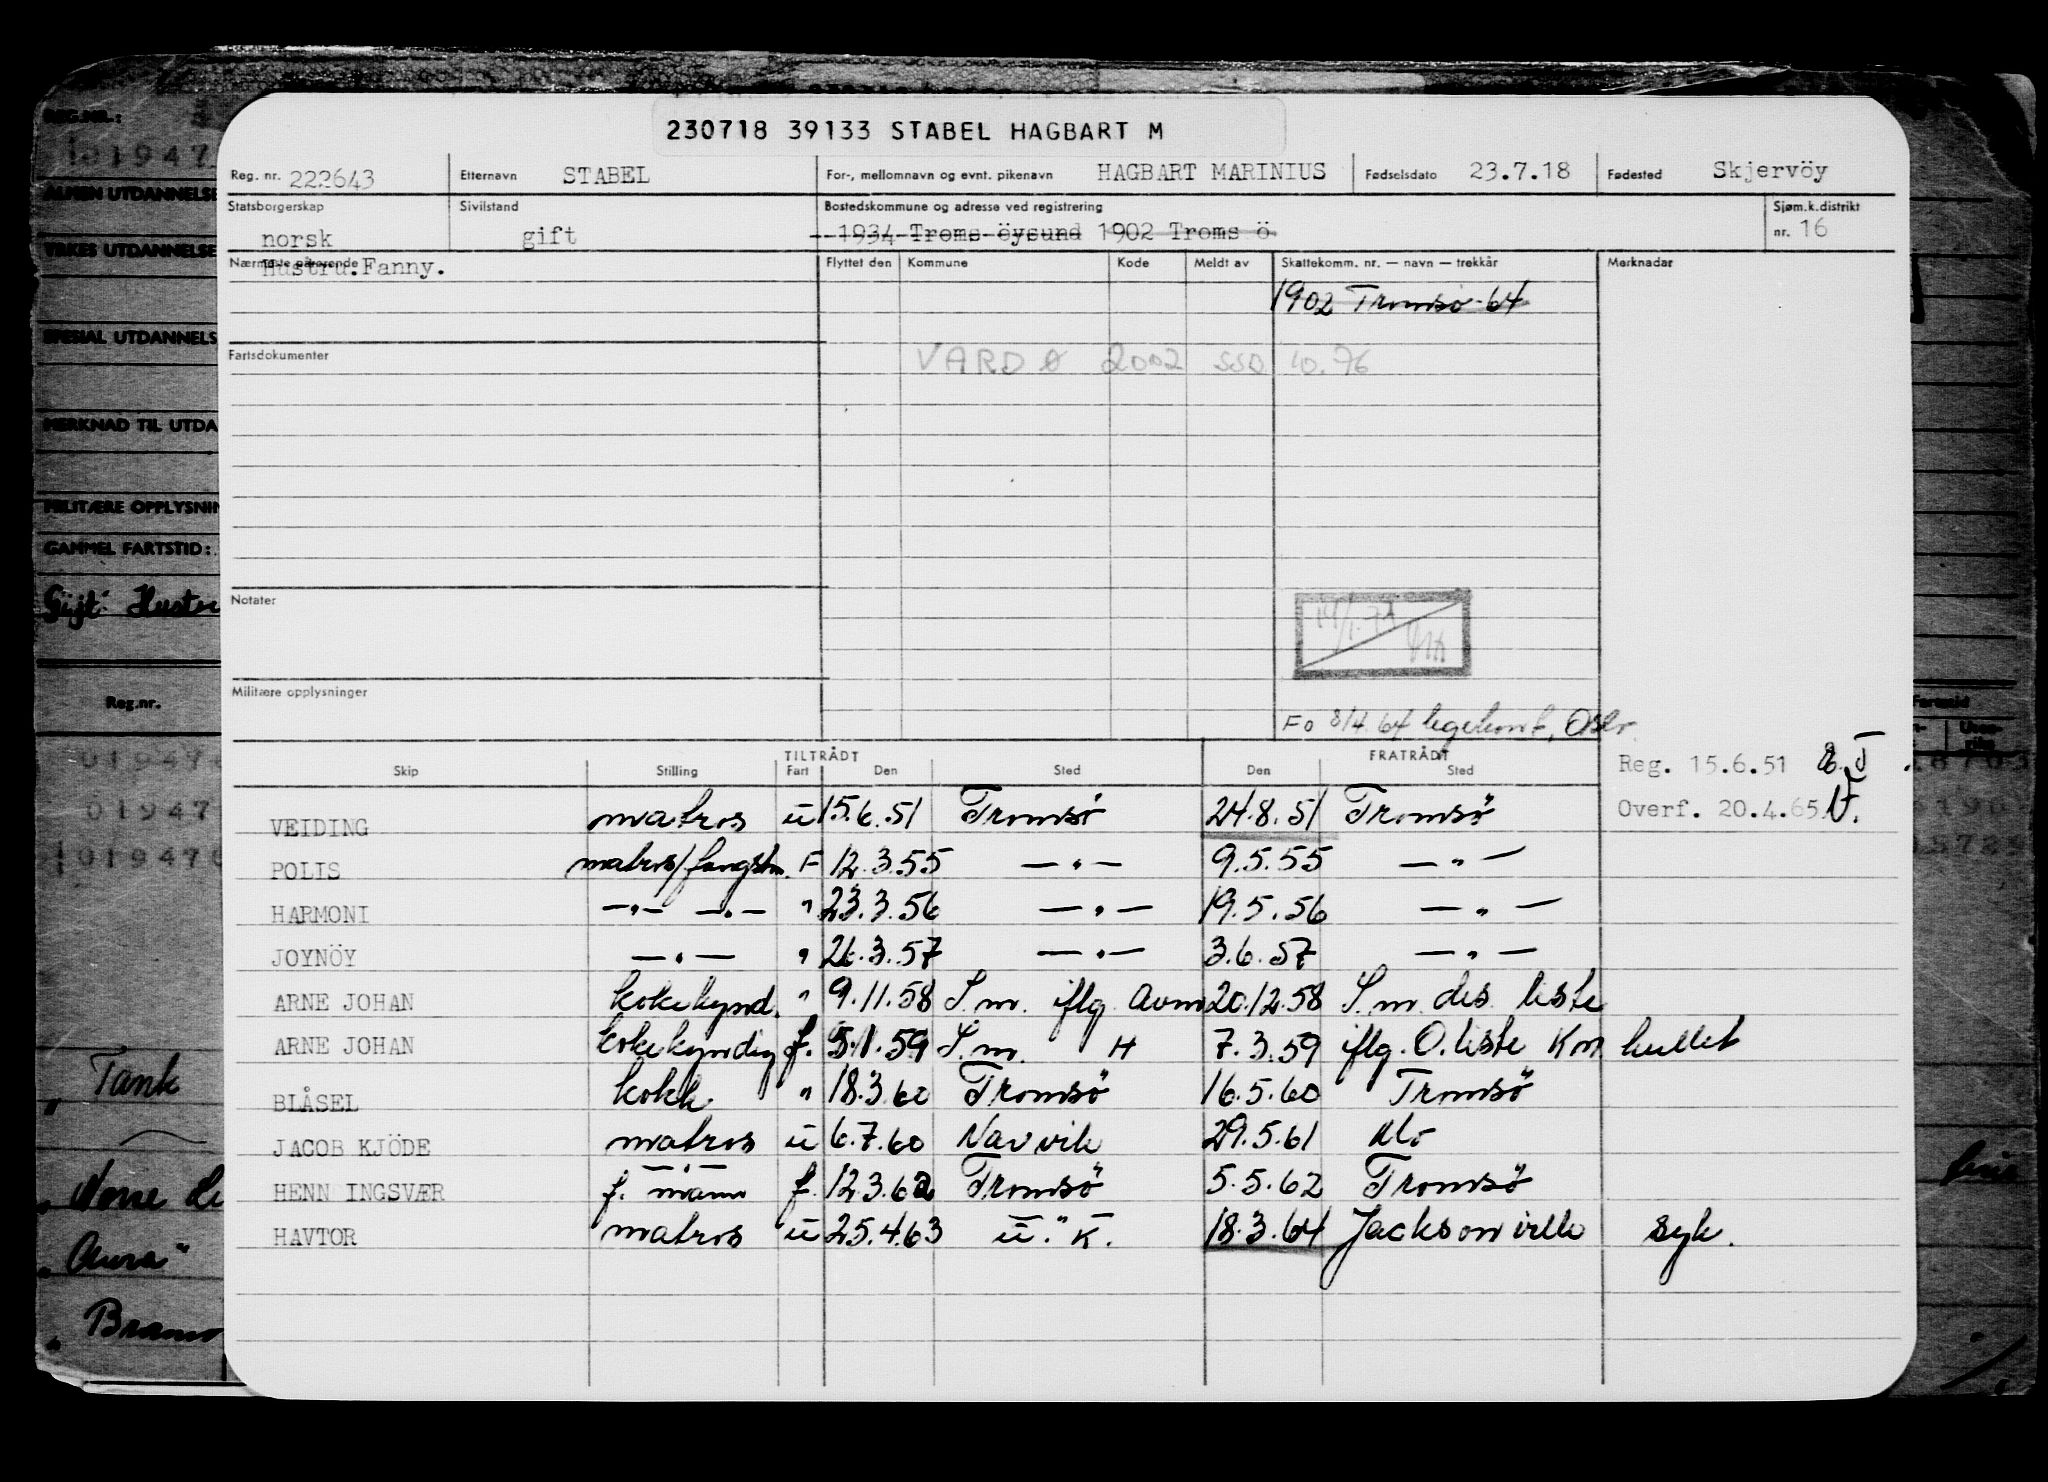 230718 39133 STABEL HAGBART M
Reg. nr. 222643 Etternavn STABEL For-, mellomnavn og evnt. pikenavn HAGBART MARINIUS Fødselsdato 23.7.18 Fødested Skjervöy
Statsborgerskap Sivilstand Bostedskommune og adresse ved registrering Sjøm.k.distrikt
norsk gift 1934 Troms öysund 1902 Troms ö nr. 16
Nærmeste pårørende Flyttet den Kommune Kode Meldt av Skattekomm. nr. — navn — trekkår Merknadar
Hustru:Fanny.
1902 Tromsø-64
Fartsdokumenter
VARDØ 2002 SSD 10.76
Notater
Militære opplysninger
Fo 8/4.64 legekont, Oslo.
TILTRÅDT FRATRÅDT
Skip Stilling Fart Den Sted Den Sted
Reg. 15.6.51
Overf. 20.4.65
VEIDING matros u 15.6.51 Tromsö 24.8.51 Tromsö
POLIS matros/fangstm. F 12.3.55 — " — 9.5.55 — " —
HARMONI — " — — " — " 23.3.56 — " — 19.5.56 — " —
JOYNÖY — " — " 26.3.57 — " — 3.6.57 — " —
ARNE JOHAN kokekynd. " 9.11.58 S.m. iflg. Avm 20.12.58 S.m. des. liste
ARNE JOHAN kokekyndig f. 5.1.59 S.m. H 7.3.59 iflg. O. liste Km hullet
BLÅSEL kokk " 18.3.60 Tromsö 16.5.60 Tromsö
JACOB KJÖDE matros u 6.7.60 Narvik 29.5.61 Mo
HENN INGSVÆR f. mann f. 12.3.62 Tromsö 5.5.62 Tromsö
HAVTOR matros u 25.4.63 u. K. 18.3.64 Jacksonville syk.
REG.NR.:
101947
ALMEN UTDANNELSE
YRKES UTDANNELSE
SPESIAL UTDANNELS
MERKNAD TIL UTDA
MILITÆRE OPPLYSNIN
GAMMEL FARTSTID:
Gift: Hustru
Reg.nr.
01947
01947
101947
" Tank
" Norse
" Aura"